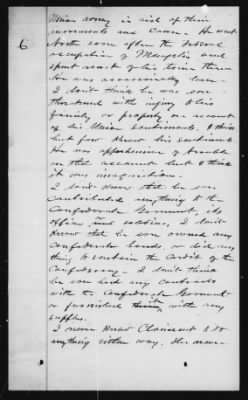 6
Union army in aid of their
movements and cause. He went
North soon after the Federal
occupation of Memphis and
spent most of his time there
He was occasionally here
I don't think he was ever
threatened with injury to his
family or property on account
of his Union sentiments. I think
but few knew his sentiments.
He was apprehensive of trouble
on that account but I think
it was imagination.
I don't know that he ever
contributed anything to the
Confederate Government, its
officers and soldiers, I don't
know that he ever owned any
Confederate bonds, or did any
thing to sustain the credit of the
Confederacy. I don't think
he ever had any contracts
with the Confederate Government
or furnished them with any
supplies.
I never knew Claimant to do
anything either way. She was